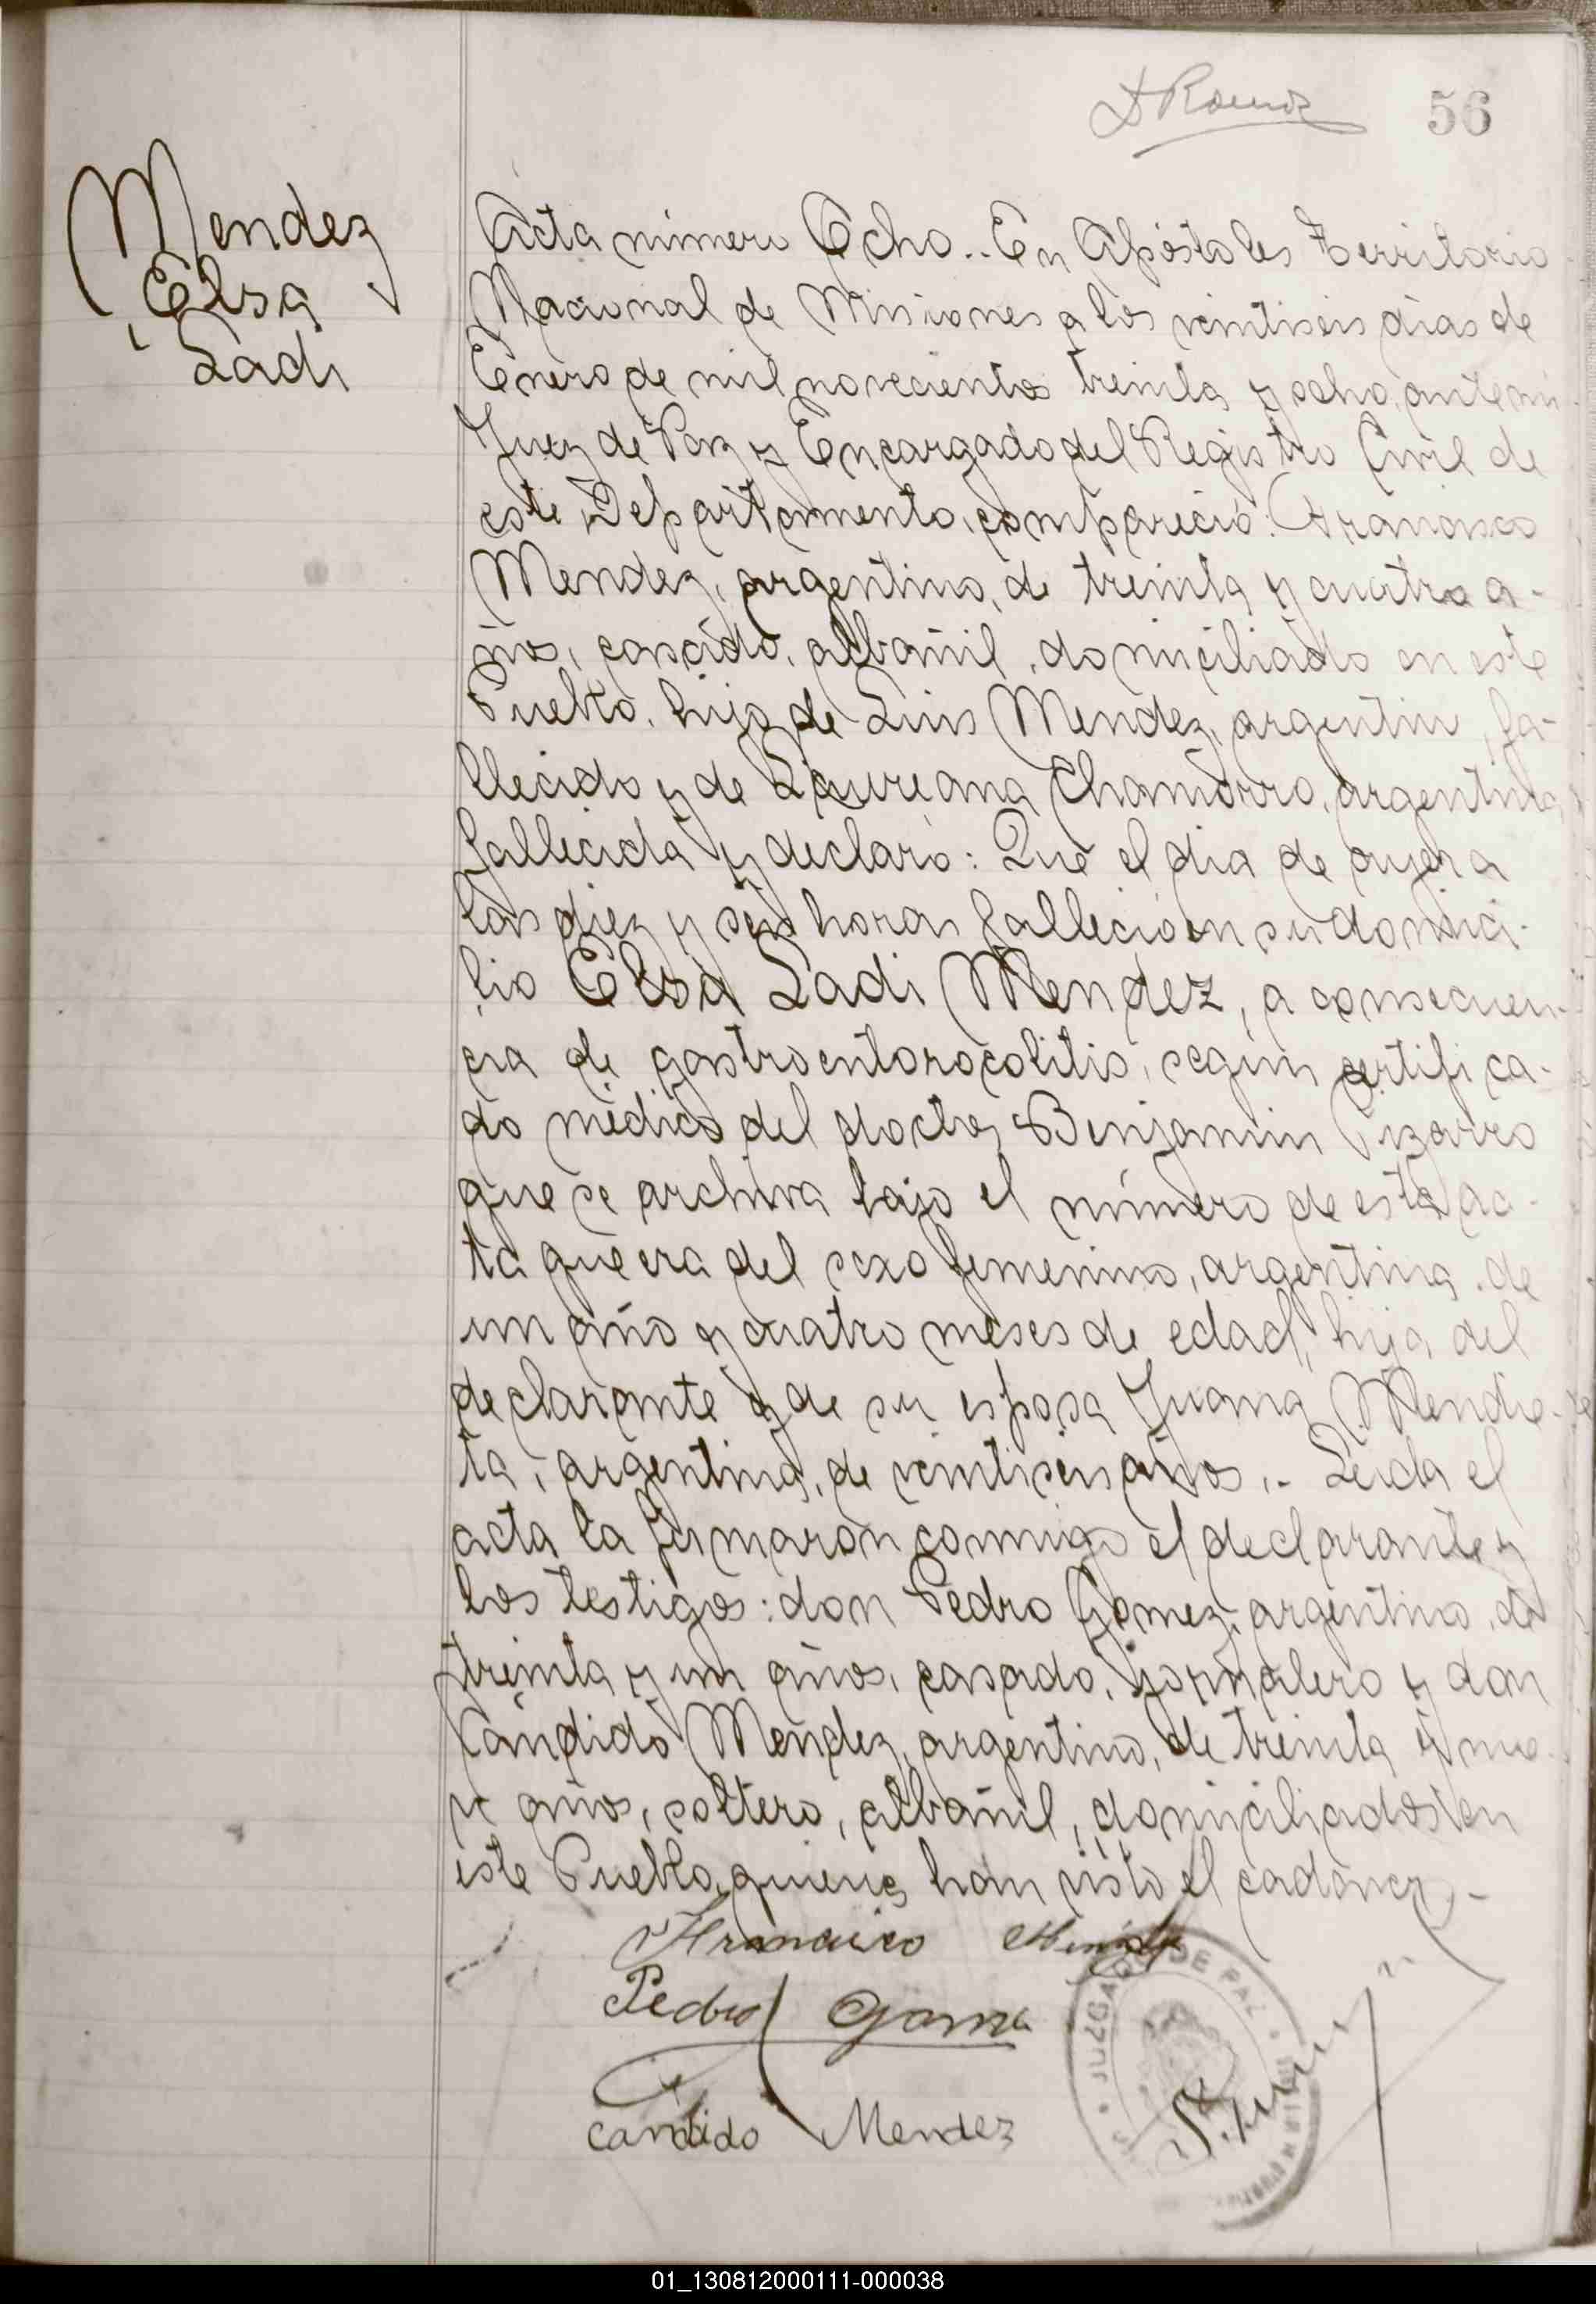 56
Mendez
Elsa
Ladi
Acta número Ocho.. En Apóstoles Territorio
Nacional de Misiones a los veintiseis dias de
Enero de mil novecientos treinta y ocho, ante mi
Juez de Paz y Encargado del Registro Civil de
este Departamento, compareció: Francisco
Mendez, argentino, de treinta y cuatro a-
ños, casado, albañil, domiciliado en este
Pueblo, hijo de Luis Mendez, argentino, fa-
llecido y de Laureana Chamorro, argentina,
fallecida y declaró: Que el dia de ayer a
las diez y seis horas falleció en su domici-
lio Elsa Ladi Mendez, a consecuen-
cia de gastroenterocolitis, según certifica-
do médico del doctor Benjamin Pizarro
que se archiva bajo el número de esta ac-
ta que era del sexo femenino, argentina, de
un año y cuatro meses de edad, hija del
declarante y de su esposa Juana Mendie-
ta, argentina, de veintiseis años.- Leida el
acta la firmaron conmigo el declarante y
los testigos: don Pedro Gomez, argentino, de
treinta y un años, casado, jornalero y don
Cándido Mendez, argentino, de treinta y nue-
ve años, soltero, albañil, domiciliados en
este Pueblo, quienes han visto el cadáver.-
Francisco Mendez
Pedro Gomez
Candido Mendez
JUZGADO DE PAZ
01_130812000111-000038